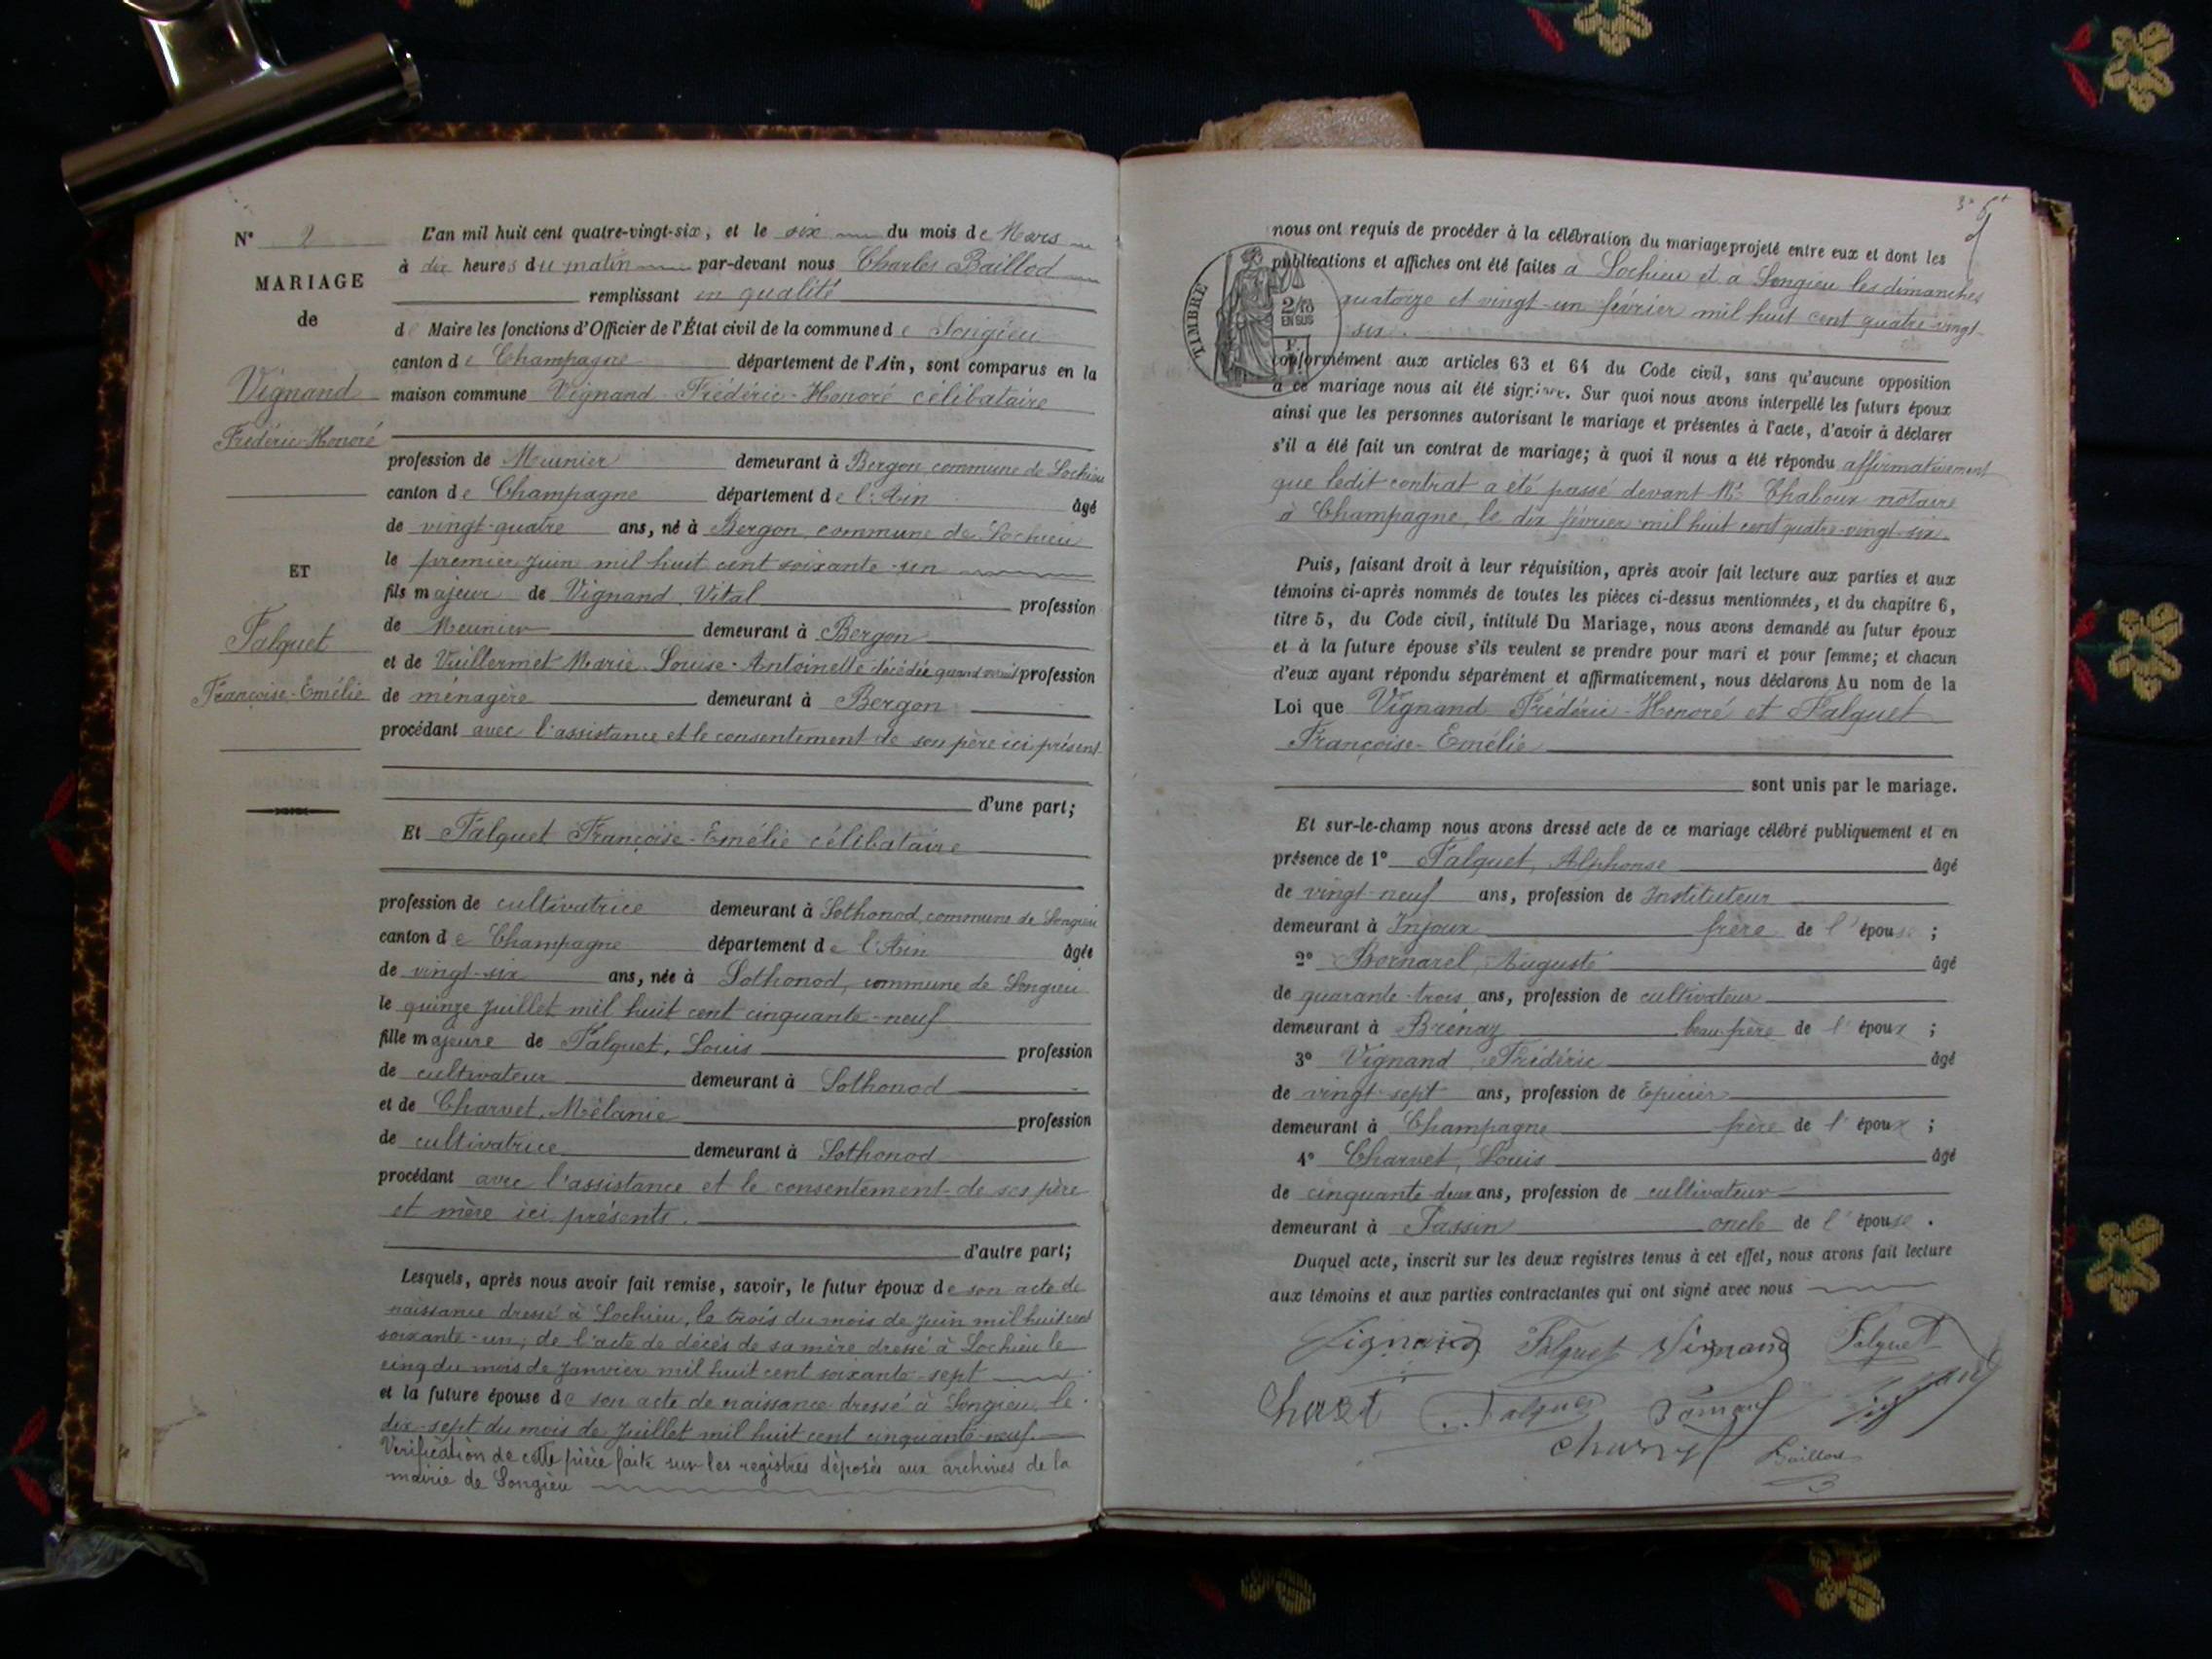 N° 2
MARIAGE
de
Vignand
Frédéric-Honoré
ET
Falquet
Françoise-Emélie
L'an mil huit cent quatre-vingt-six, et le six du mois de Mars
à dix heures du matin par-devant nous Charles Baillod
remplissant en qualité
de Maire les fonctions d'Officier de l'État civil de la commune de Songieu
canton de Champagne département de l'Ain, sont comparus en la
maison commune Vignand Frédéric-Honoré célibataire
profession de Meunier demeurant à Bergon, commune de Lochieu
canton de Champagne département de l'Ain âgé
de vingt-quatre ans, né à Bergon, commune de Lochieu
le premier Juin mil huit cent soixante-un
fils majeur de Vignand, Vital profession
de Meunier demeurant à Bergon
et de Vuillermet Marie-Louise-Antoinette décédée quand vivait profession
de ménagère demeurant à Bergon
procédant avec l'assistance et le consentement de son père ici présent
d'une part;
Et Falquet Françoise-Emélie célibataire
profession de cultivatrice demeurant à Sothonod, commune de Songieu
canton de Champagne département de l'Ain âgée
de vingt-six ans, née à Sothonod, commune de Songieu
le quinze Juillet mil huit cent cinquante-neuf
fille majeure de Falquet, Louis profession
de cultivateur demeurant à Sothonod
et de Charvet, Mélanie profession
de cultivatrice demeurant à Sothonod
procédant avec l'assistance et le consentement de ses père
et mère ici présents.
d'autre part;
Lesquels, après nous avoir fait remise, savoir, le futur époux de son acte de
naissance dressé à Lochieu, le trois du mois de Juin mil huit cent
soixante-un; de l'acte de décès de sa mère dressé à Lochieu le
cinq du mois de Janvier mil huit cent soixante-sept
et la future épouse de son acte de naissance dressé à Songieu, le
dix-sept du mois de Juillet mil huit cent cinquante-neuf.
Vérification de cette pièce faite sur les registres déposés aux archives de la
mairie de Songieu
nous ont requis de procéder à la célébration du mariage projeté entre eux et dont les
publications et affiches ont été faites à Lochieu et à Songieu les dimanches
quatorze et vingt-un février mil huit cent quatre-vingt-
six.
TIMBRE
2/10
EN SUS
conformément aux articles 63 et 64 du Code civil, sans qu'aucune opposition
à ce mariage nous ait été signifiée. Sur quoi nous avons interpellé les futurs époux
ainsi que les personnes autorisant le mariage et présentes à l'acte, d'avoir à déclarer
s'il a été fait un contrat de mariage; à quoi il nous a été répondu affirmativement
que ledit contrat a été passé devant Me Chaboux notaire
à Champagne, le dix février mil huit cent quatre-vingt-six.
Puis, faisant droit à leur réquisition, après avoir fait lecture aux parties et aux
témoins ci-après nommés de toutes les pièces ci-dessus mentionnées, et du chapitre 6,
titre 5, du Code civil, intitulé Du Mariage, nous avons demandé au futur époux
et à la future épouse s'ils veulent se prendre pour mari et pour femme; et chacun
d'eux ayant répondu séparément et affirmativement, nous déclarons Au nom de la
Loi que Vignand Frédéric-Honoré et Falquet
Françoise-Emélie
sont unis par le mariage.
Et sur-le-champ nous avons dressé acte de ce mariage célébré publiquement et en
présence de 1° Falquet, Alphonse âgé
de vingt-neuf ans, profession de Instituteur
demeurant à Injoux frère de l'épouse ;
2° Bornarel, Auguste âgé
de quarante-trois ans, profession de cultivateur
demeurant à Brénaz beau-frère de l'époux ;
3° Vignand, Frédéric âgé
de vingt-sept ans, profession de Epicier
demeurant à Champagne frère de l'époux ;
4° Charvet, Louis âgé
de cinquante-deux ans, profession de cultivateur
demeurant à Passin oncle de l'épouse .
Duquel acte, inscrit sur les deux registres tenus à cet effet, nous avons fait lecture
aux témoins et aux parties contractantes qui ont signé avec nous
Vignand Falquet Vignand Falquet
Falquet
Baillod